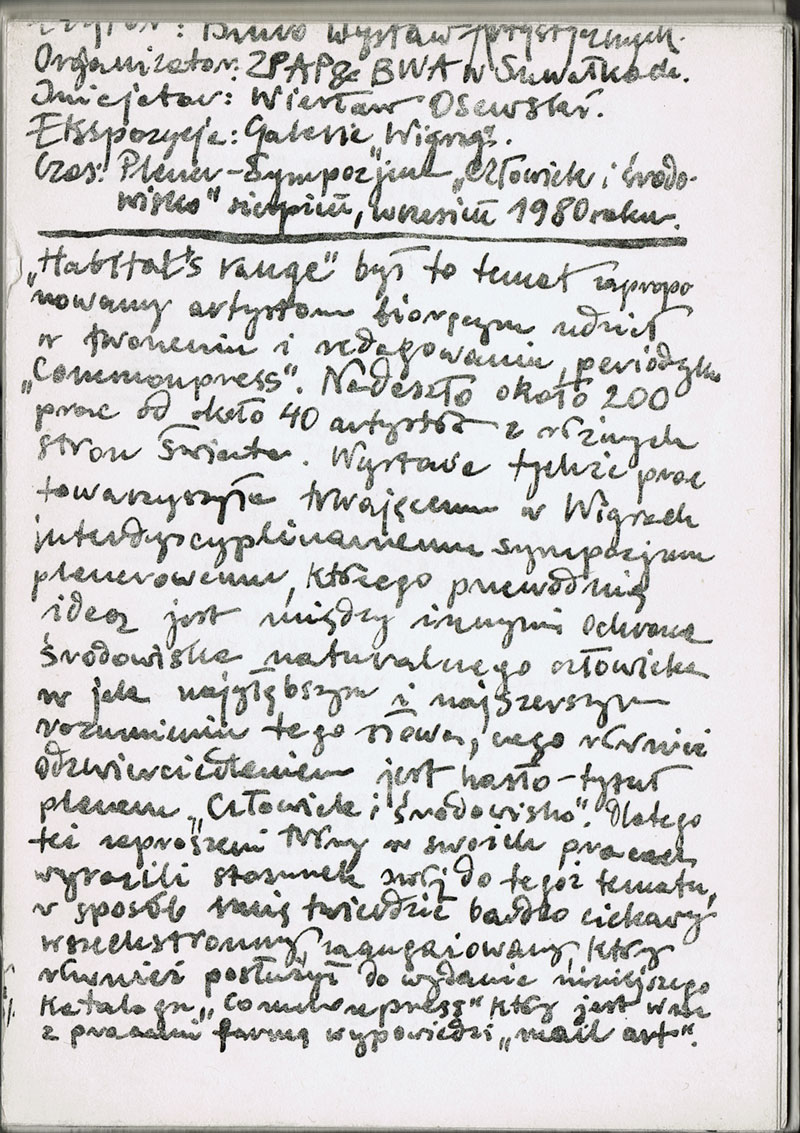 Biuro Wystaw Artystycznych.
Organizator: ZPAP i BWA w Suwałkach.
Inicjator: Wiesław Osewski.
Ekspozycja: Galeria „Wigry".
Czas: Plener-Sympozjum „Człowiek i środo-
wisko" sierpień, wrzesień 1980 roku.
„Habitat's range" był to temat zapropo
nowany artystom biorącym udział
w tworzeniu i redagowaniu periodyku
„Commonpress". Nadeszło około 200
prac od około 40 artystów z różnych
stron świata. Wystawa tychże prac
towarzyszyła trwającemu w Wigrach
interdyscyplinarnemu sympozjum
plenerowemu, którego przewodnią
ideą jest między innymi ochrona
środowiska naturalnego człowieka
w jak najgłębszym i najszerszym
rozumieniu tego słowa, czego również
odzwierciedleniem jest hasło-tytuł
pleneru „Człowiek i środowisko". Dlatego
też zaproszeni twórcy w swoich pracach
wyrazili stosunek swój do tegoż tematu,
w sposób śmię twierdzić bardzo ciekawy
wszechstronny, zaangażowany, który
również posłużył do wydania niniejszego
katalogu „Commonpress" który jest wraz
z pracami formą wypowiedzi „mail art".